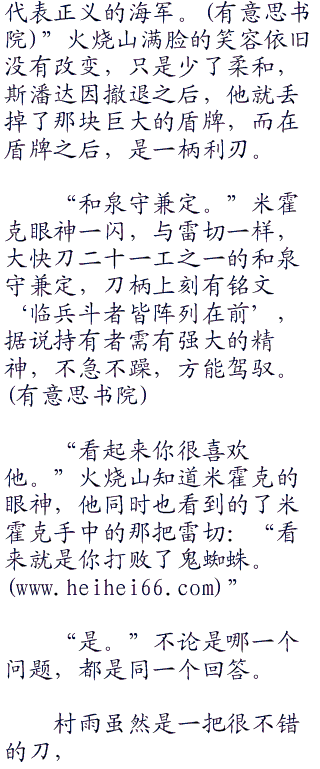 代表正义的海军。(有意思书
院)”火烧山满脸的笑容依旧
没有改变，只是少了柔和，
斯潘达因撤退之后，他就丢
掉了那块巨大的盾牌，而在
盾牌之后，是一柄利刃。
“和泉守兼定。”米霍
克眼神一闪，与雷切一样，
大快刀二十一工之一的和泉
守兼定，刀柄上刻有铭文
‘临兵斗者皆阵列在前’，
据说持有者需有强大的精
神，不急不躁，方能驾驭。
(有意思书院)
“看起来你很喜欢
他。”火烧山知道米霍克的
眼神，他同时也看到的了米
霍克手中的那把雷切：“看
来就是你打败了鬼蜘蛛。
(www.heihei66.com)”
“是。”不论是哪一个
问题，都是同一个回答。
村雨虽然是一把很不错
的刀，